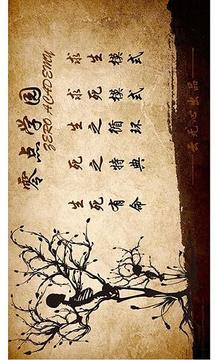 零点学园
ZERO ACADEMY
求生模式
求死模式
生之循环
死之特典
生死有命
云无心出品